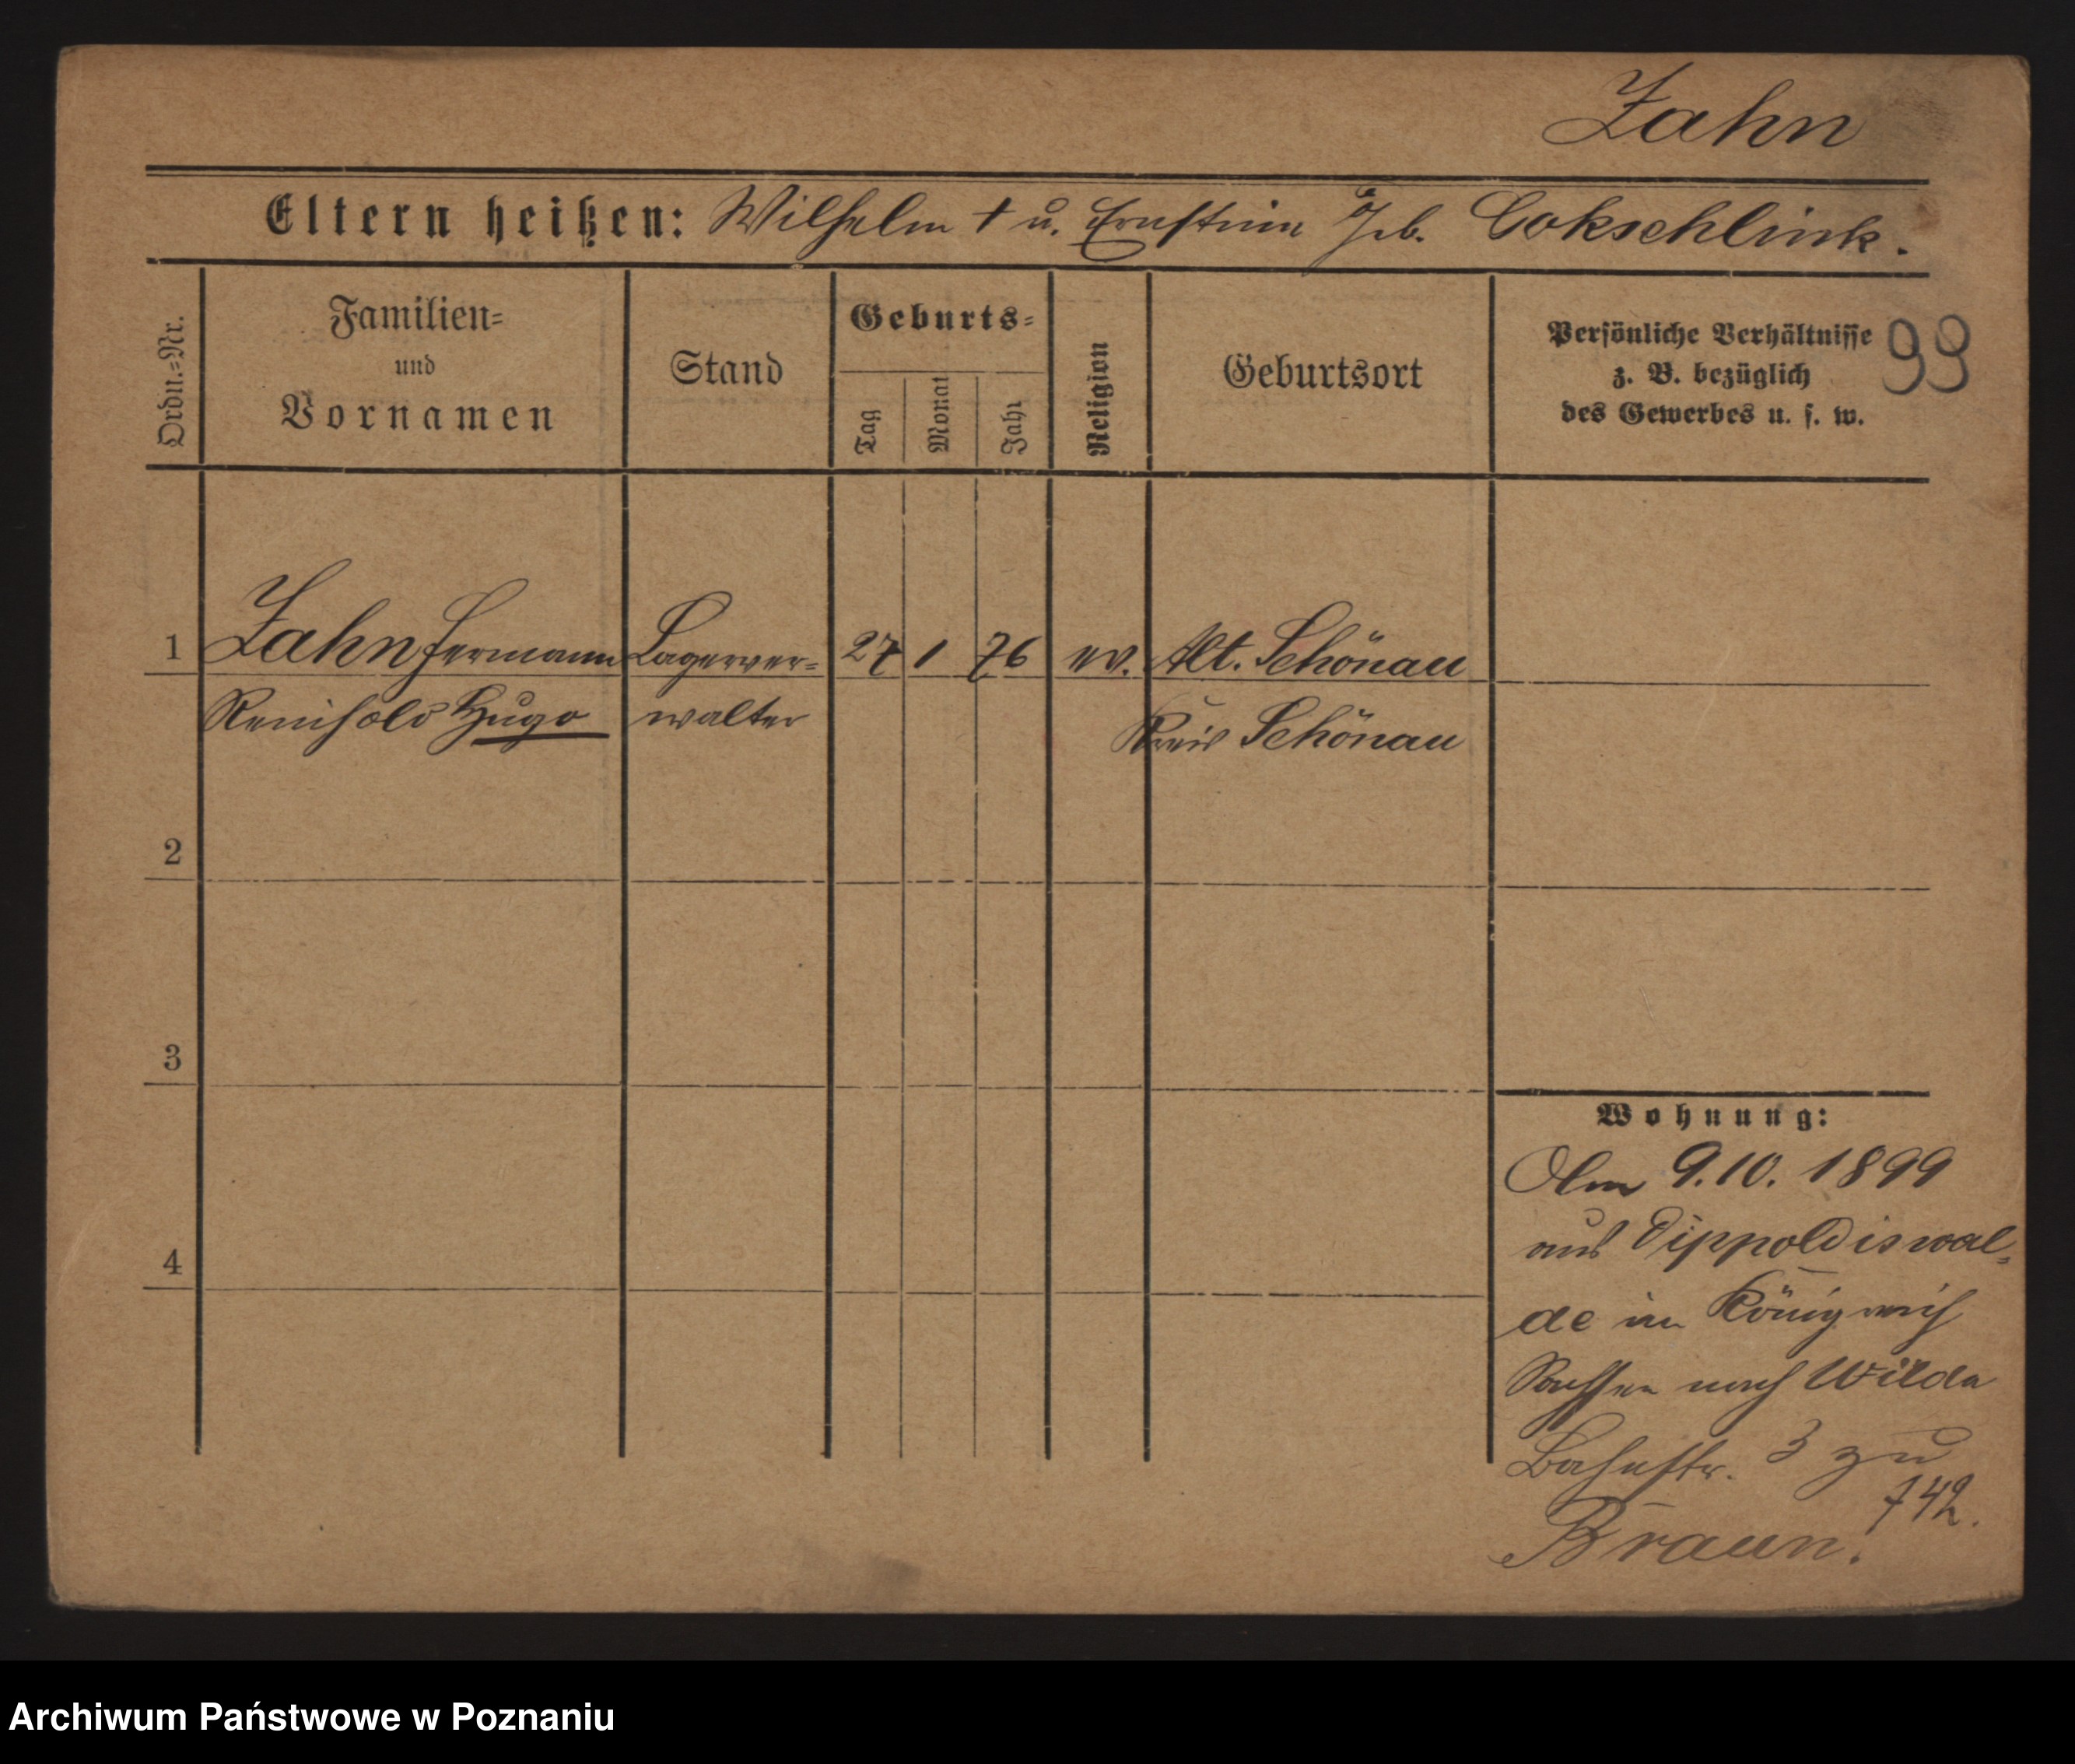 Zahn
Eltern heißen: Wilhelm † u. Ernstine geb. Cokschlink.
Ordn.=Nr.
Familien=
und
Vornamen
Stand
Geburts=
Tag
Monat
Jahr
Religion
Geburtsort
Persönliche Verhältnisse
z. B. bezüglich
des Gewerbes u. s. w.
99
1 Zahn Hermann Lagerver= 27 1 76 ev. Alt. Schönau
Reinhold Hugo walter Kreis Schönau
2
3
4
Wohnung:
Am 9.10. 1899
aus Dippoldiswal=
de im Königreich
Sachsen nach Wilda
Bahnstr. 3 zu
742.
Braun.
Archiwum Państwowe w Poznaniu